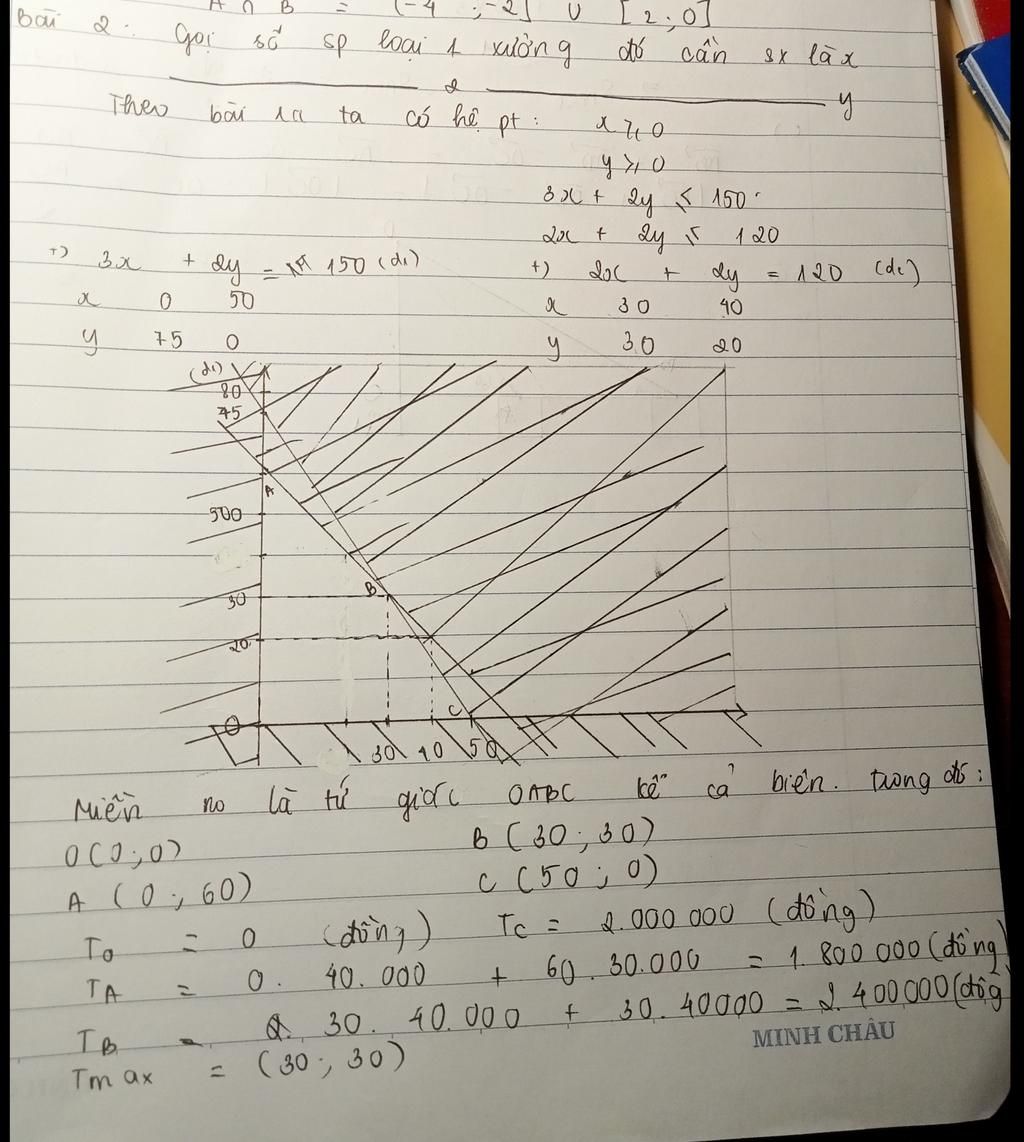 A ∩ B = (-4 ; -2] ∪ [2 ; 0]
Bài 2: Gọi số sp loại 1 xưởng đó cần sx là x
2 y
Theo bài ra ta có hệ pt: x ≥ 0
y ≥ 0
3x + 2y ≤ 150
2x + 2y ≤ 120
+) 3x + 2y = 150 (d1) +) 2x + 2y = 120 (d2)
x 0 50 x 30 40
y 75 0 y 30 20
(d1)
80
75
A
500
B
30
20
C
O 30 40 50
Miền no là tứ giác OABC kể cả biên. trong đó:
O(0;0) B (30 ; 30)
A (0 ; 60) C (50 ; 0)
T0 = 0 (đồng) TC = 2.000 000 (đồng)
TA = 0. 40.000 + 60.30.000 = 1.800 000 (đồng)
TB = 30. 40.000 + 30.40000 = 2.400000 (đồg
Tmax = (30 ; 30)
MINH CHÂU